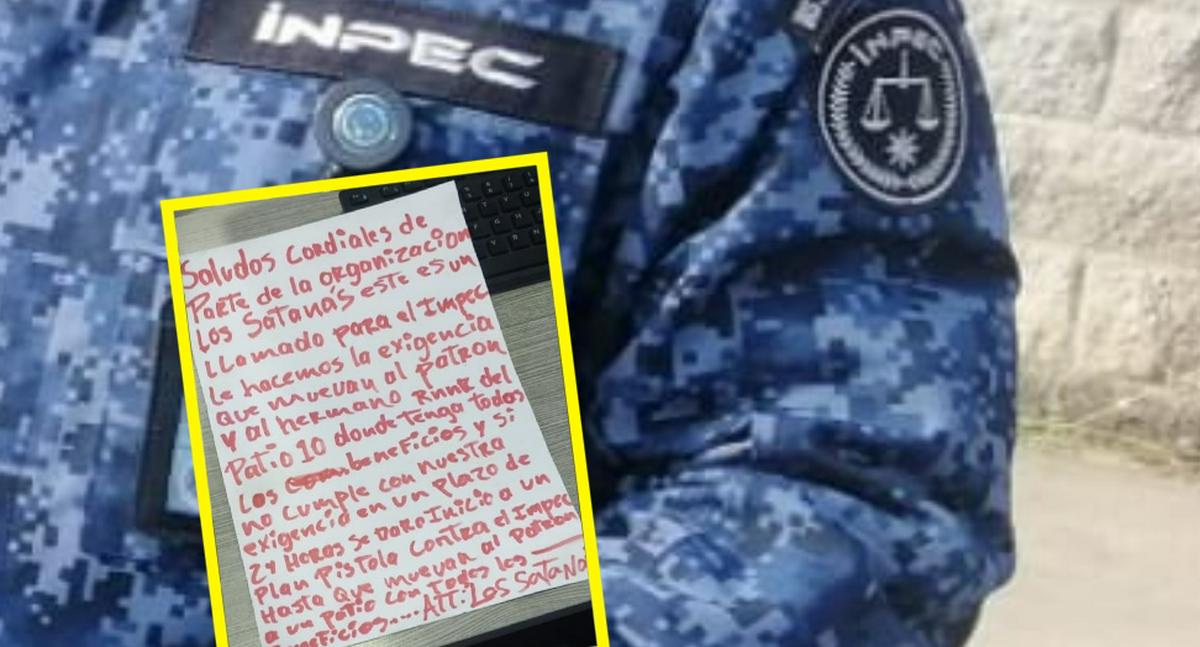 INPEC
INPEC
Saludos Cordiales de
Parte de la organizacion
Los Satanás este es un
llamado para el Impec
le hacemos la exigencia
que muevan al Patron
y al hermano Rnnk del
Patio 10 donde tenga todos
Los beneficios y si
no cumple con nuestra
exigencia en un plazo de
24 Horas se Dara Inicio a un
Plan Pistola contra el Impec
Hasta Que muevan al Patron
a un patio con todos los
beneficios.... ATT: Los Satana